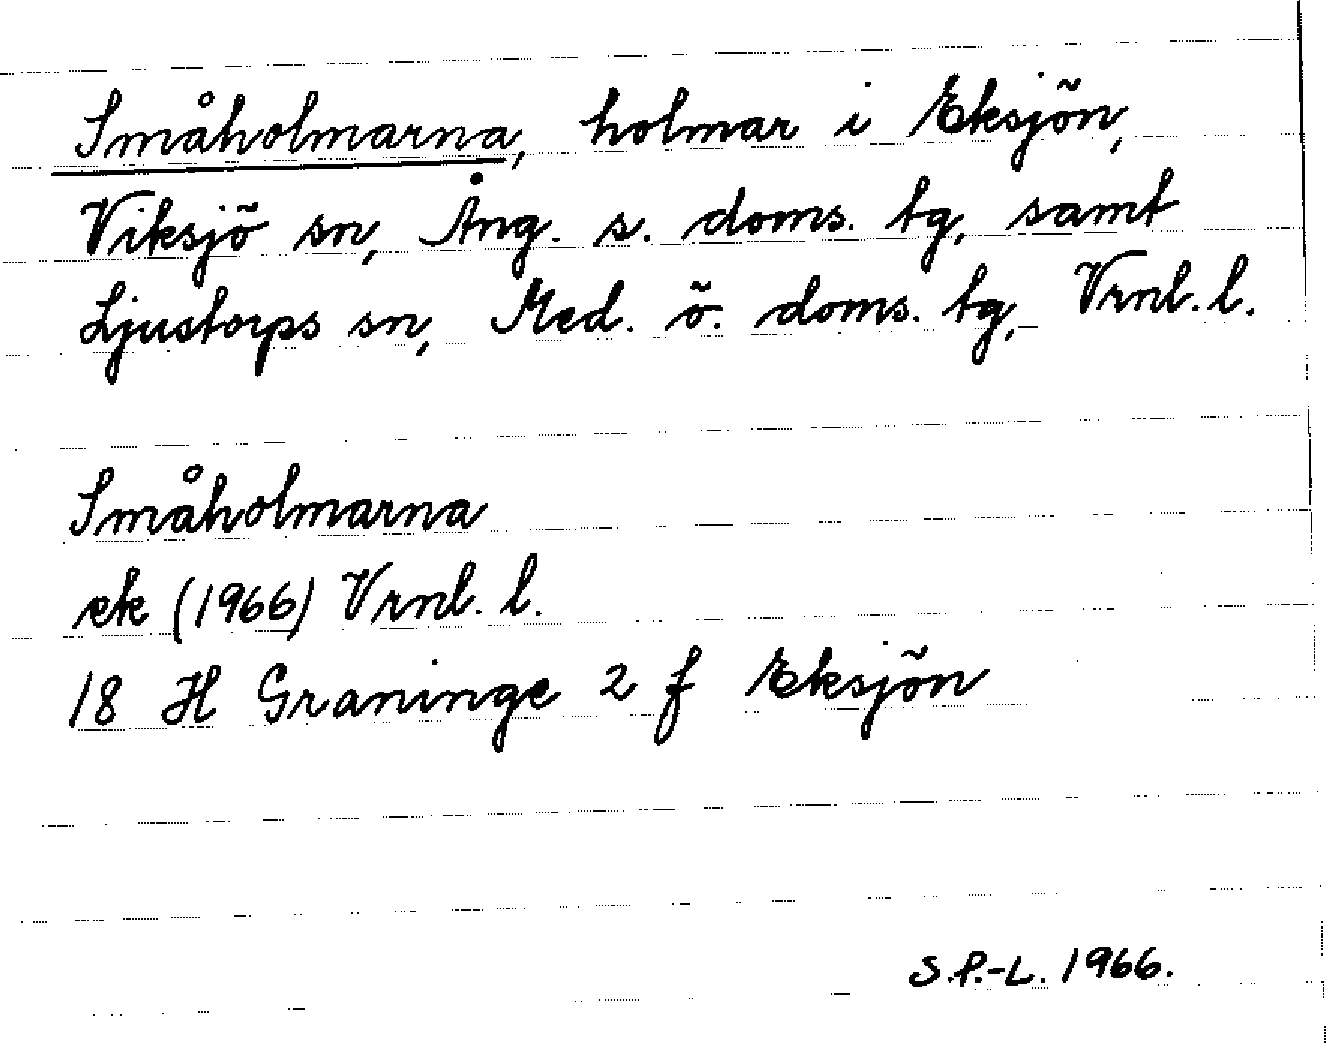 Småholmarna, holmar i Eksjön,
Viksjö sn, Ång. s. doms. tg, samt
Ljustorps sn, Med. ö. doms. tg, Vrnl. l.
Småholmarna
ek (1966) Vrnl. l.
18 H Graninge 2 f Eksjön
S.P.-L. 1966.